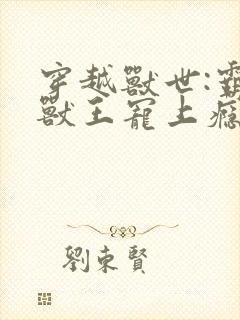 穿越獸世:霸
獸王寵上癮
劉東賢